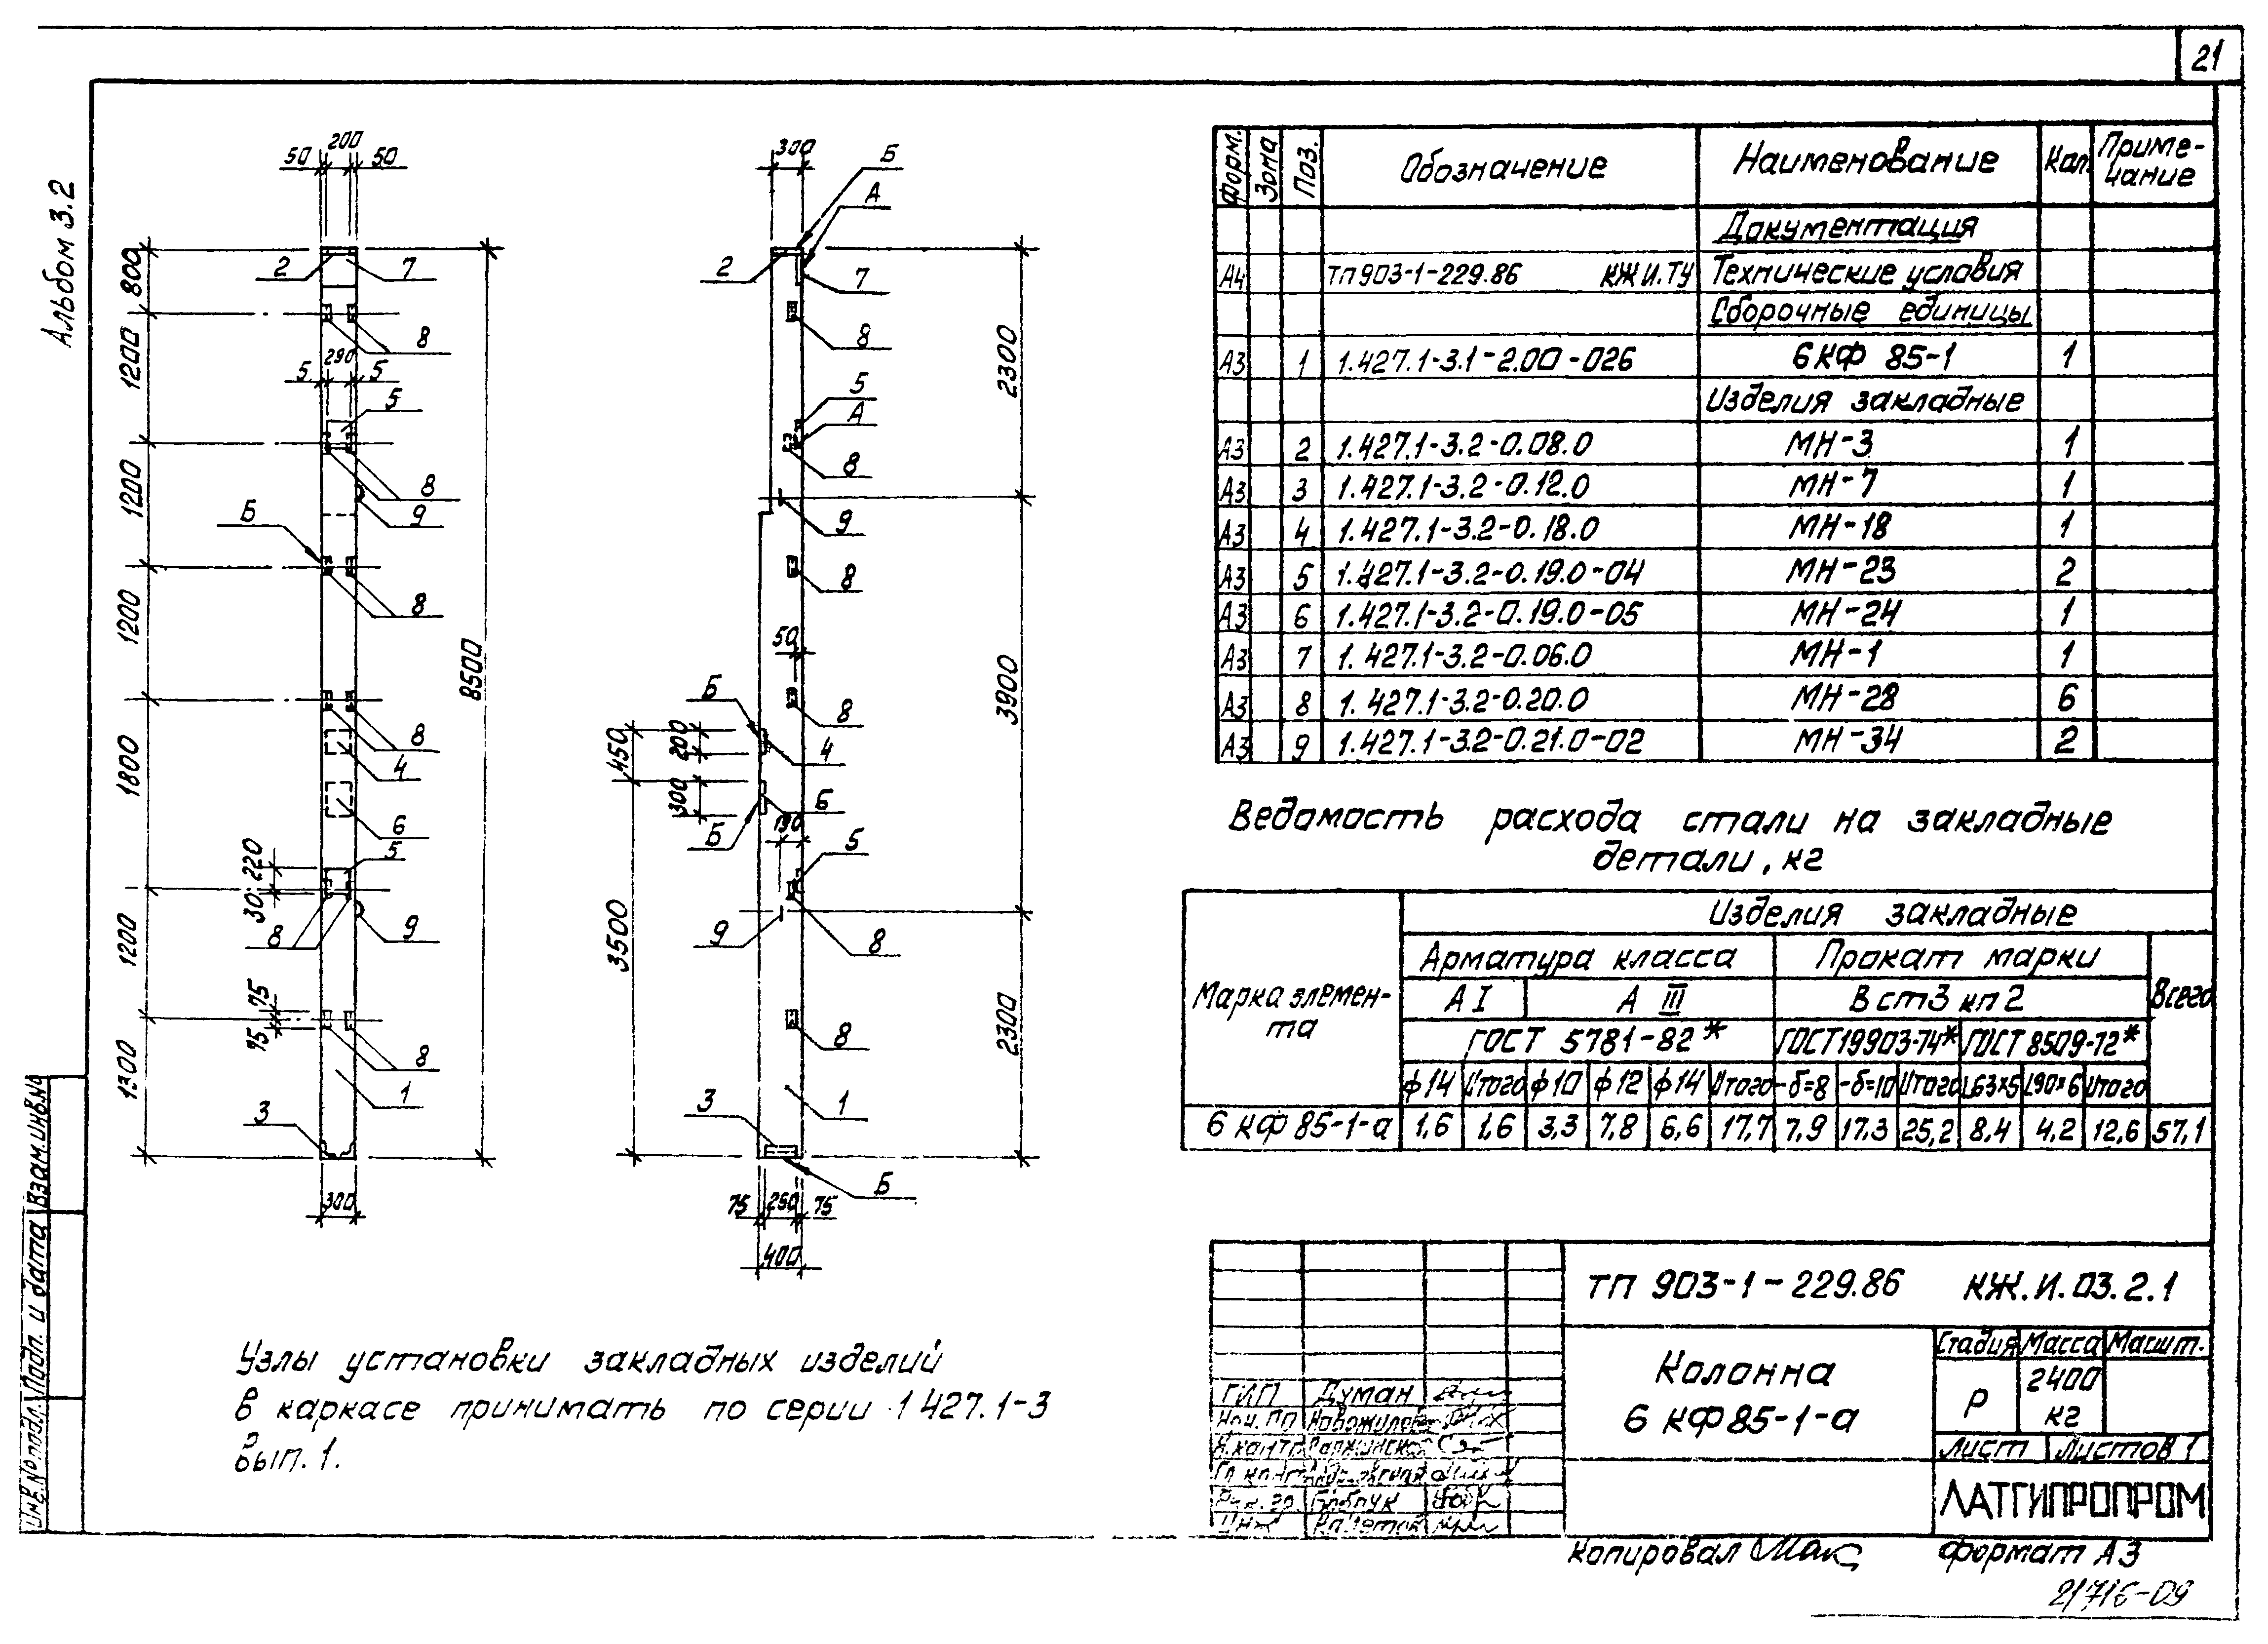 21
Альбом 3.2
50 200 50
800
1200
1200
1200
1800
1200
1300
2 7
8
5 290 5
5
8
9
Б
8
8
4
6
220
30
5
8 9
75
75
8
1
3
300
8500
300
Б
А
2 7
8
5
А
8
9
8
50
Б
8
450
200
4
300
6
Б
190
5
3500
9 8
8
3 1
Б
75 250 75
400
2300
3900
2300
Форм. Зона Поз. Обозначение Наименование Кол. Приме-
чание
Документация
А4 ТП 903-1-229.86 КЖ И.ТУ Технические условия
Сборочные единицы
А3 1 1.427.1-3.1-2.00-026 6КФ 85-1 1
Изделия закладные
А3 2 1.427.1-3.2-0.08.0 МН-3 1
А3 3 1.427.1-3.2-0.12.0 МН-7 1
А3 4 1.427.1-3.2-0.18.0 МН-18 1
А3 5 1.427.1-3.2-0.19.0-04 МН-23 2
А3 6 1.427.1-3.2-0.19.0-05 МН-24 1
А3 7 1.427.1-3.2-0.06.0 МН-1 1
А3 8 1.427.1-3.2-0.20.0 МН-28 6
А3 9 1.427.1-3.2-0.21.0-02 МН-34 2
Ведомость расхода стали на закладные
детали, кг
Марка элемен-
та
Изделия закладные
Арматура класса Прокат марки Всего
А I А III В ст3 кп 2
ГОСТ 5781-82* ГОСТ 19903-74* ГОСТ 8509-72*
ф14 Итого ф10 ф12 ф14 Итого -δ=8 -δ=10 Итого L63×5 L90×6 Итого
6 КФ 85-1-а 1,6 1,6 3,3 7,8 6,6 17,7 7,9 17,3 25,2 8,4 4,2 12,6 57,1
Узлы установки закладных изделий
в каркасе принимать по серии 1 427.1-3
вып. 1.
ТП 903-1-229.86 КЖ.И.03.2.1
Колонна
6 КФ 85-1-а
Стадия Масса Масшт.
Р 2400
кг
Лист Листов 1
ЛАТГИПРОПРОМ
ГИП Думан
Н.контр
Рук. гр. Бобрук
Инж.
Копировал Формат А3
21716-09
Инв.№ подл. Подп. и дата Взам.инв.№